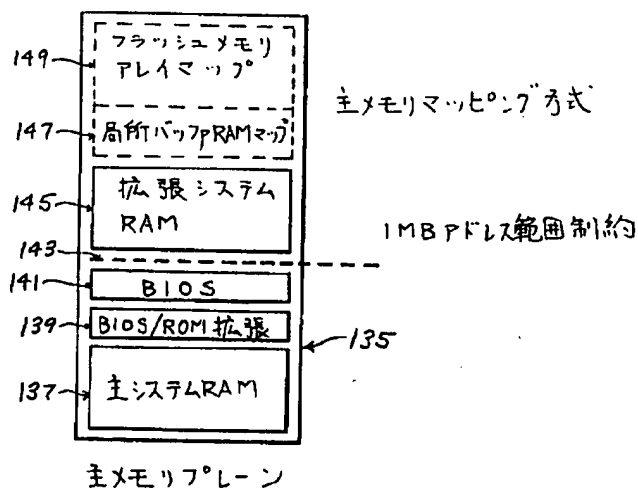 149
フラッシュメモリ
アレイマップ
主メモリマッピング方式
147
局所バッファRAMマップ
145
拡張システム
RAM
1MBアドレス範囲制約
143
141
BIOS
139
BIOS/ROM拡張
135
137
主システムRAM
主メモリプレーン